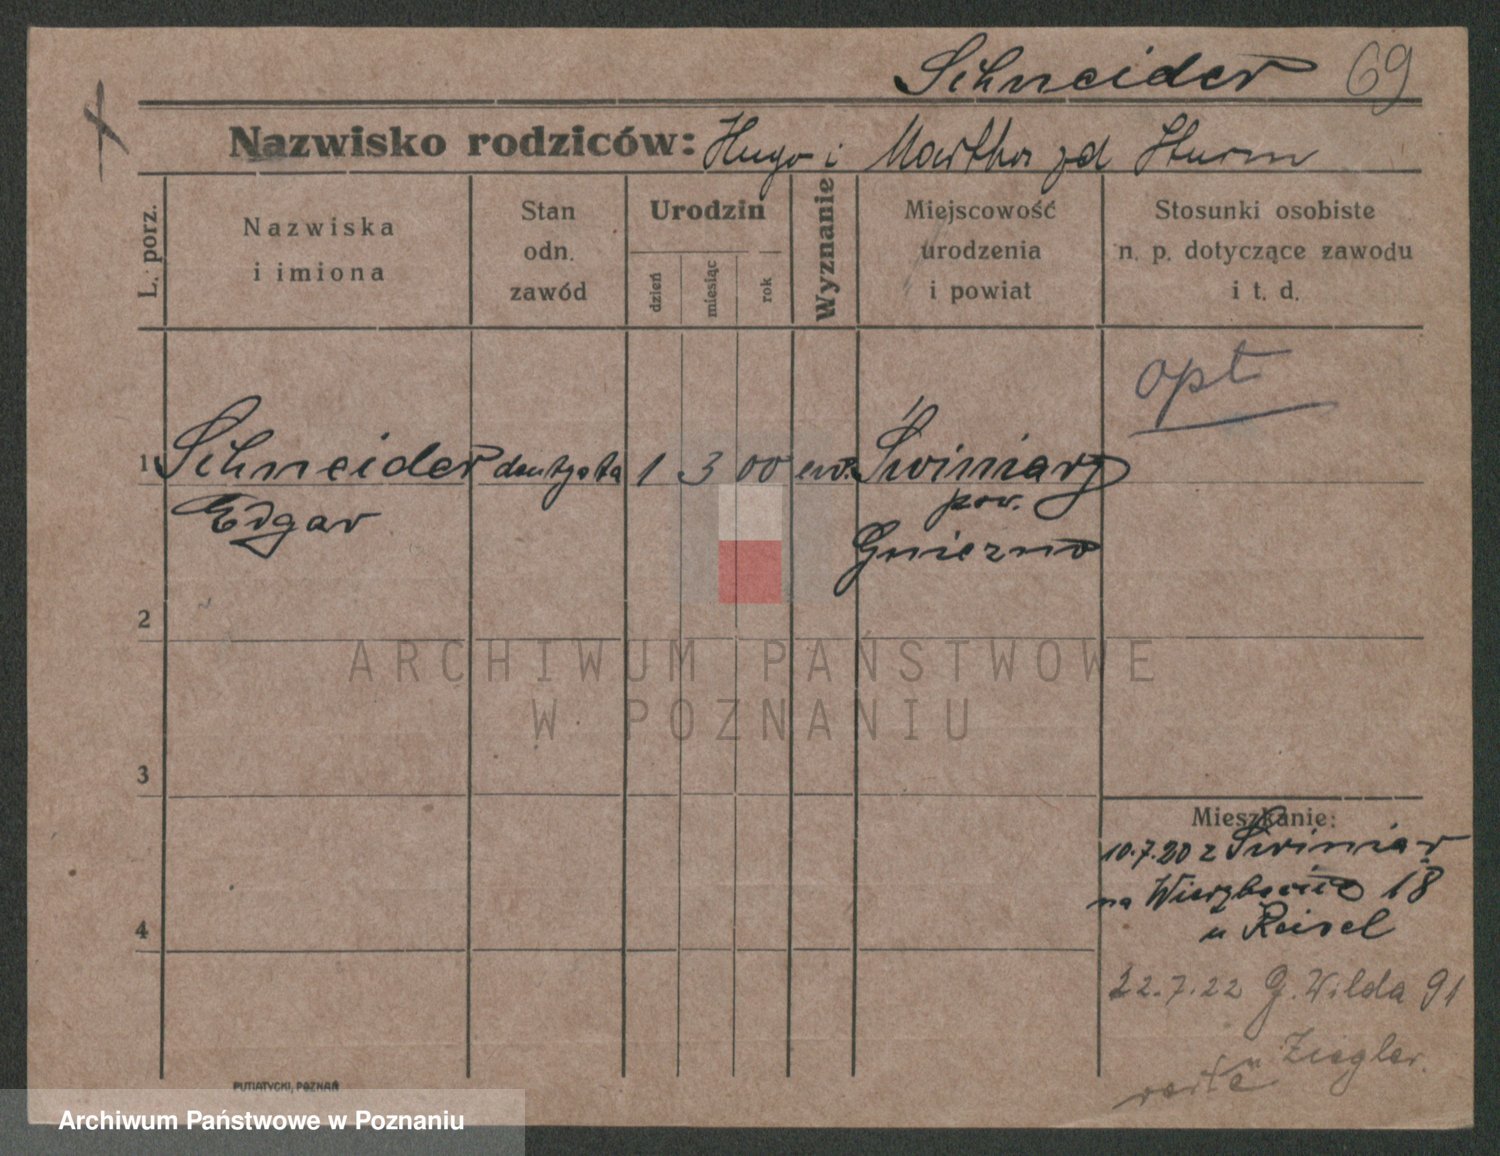 Schneider 69
Nazwisko rodziców: Hugo i Martha zd Sturm
L. porz.
Nazwiska
i imiona
Stan
odn.
zawód
Urodzin
dzień
miesiąc
rok
Wyznanie
Miejscowość
urodzenia
i powiat
Stosunki osobiste
n. p. dotyczące zawodu
i t. d.
opt
1 Schneider dentysta 1 3 00 ew. Świniary
Edgar
pow.
Gniezno
2
ARCHIWUM PAŃSTWOWE
W POZNANIU
3
Mieszkanie:
10.7.20 z Świniar
na Wierzbęcice 18
u Reisel
4
22.7.22 G. Wilda 91
u Ziegler.
PUTIATYCKI, POZNAŃ
Archiwum Państwowe w Poznaniu